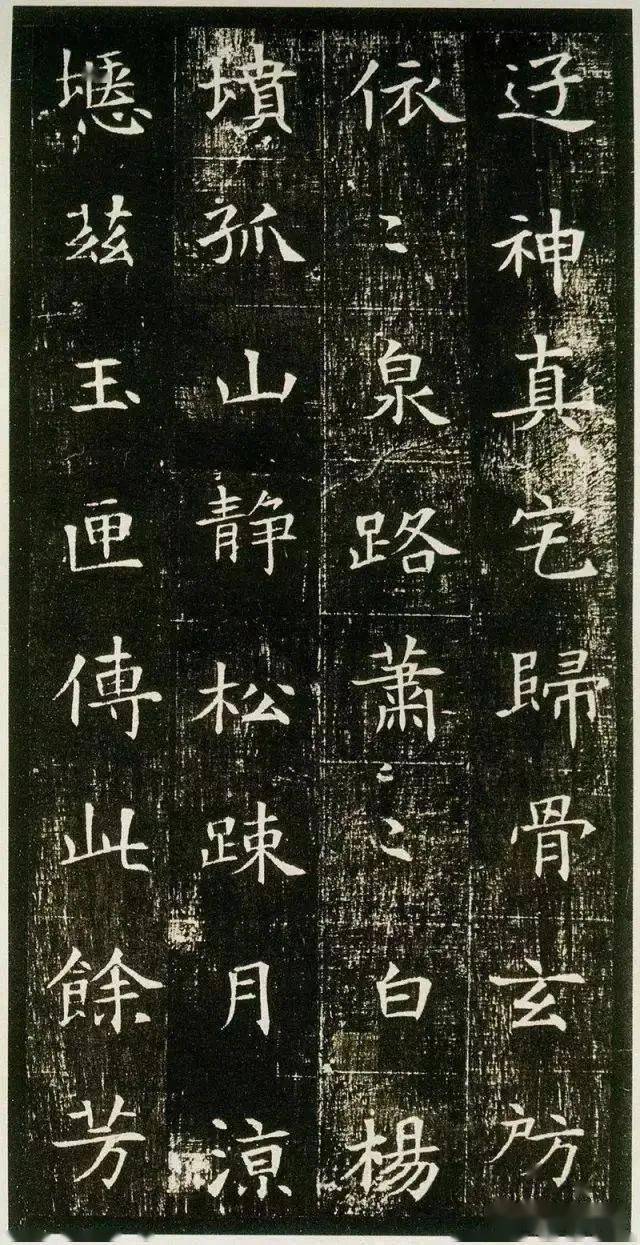 遊神真宅歸骨玄房
依〻泉路蕭〻白楊
墳孤山静松踈月涼
瘞茲玉匣傳此餘芳